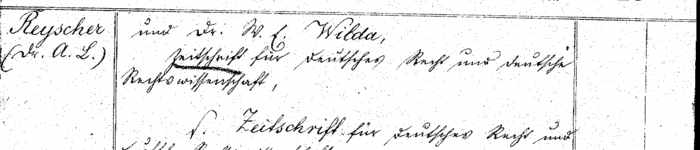 Reyscher und Dr. W. E. Wilda,
(Dr. A. L.) Zeitschrift für deutsches Recht und deutsche
Rechtswissenschaft,
s. Zeitschrift für deutsches Recht und